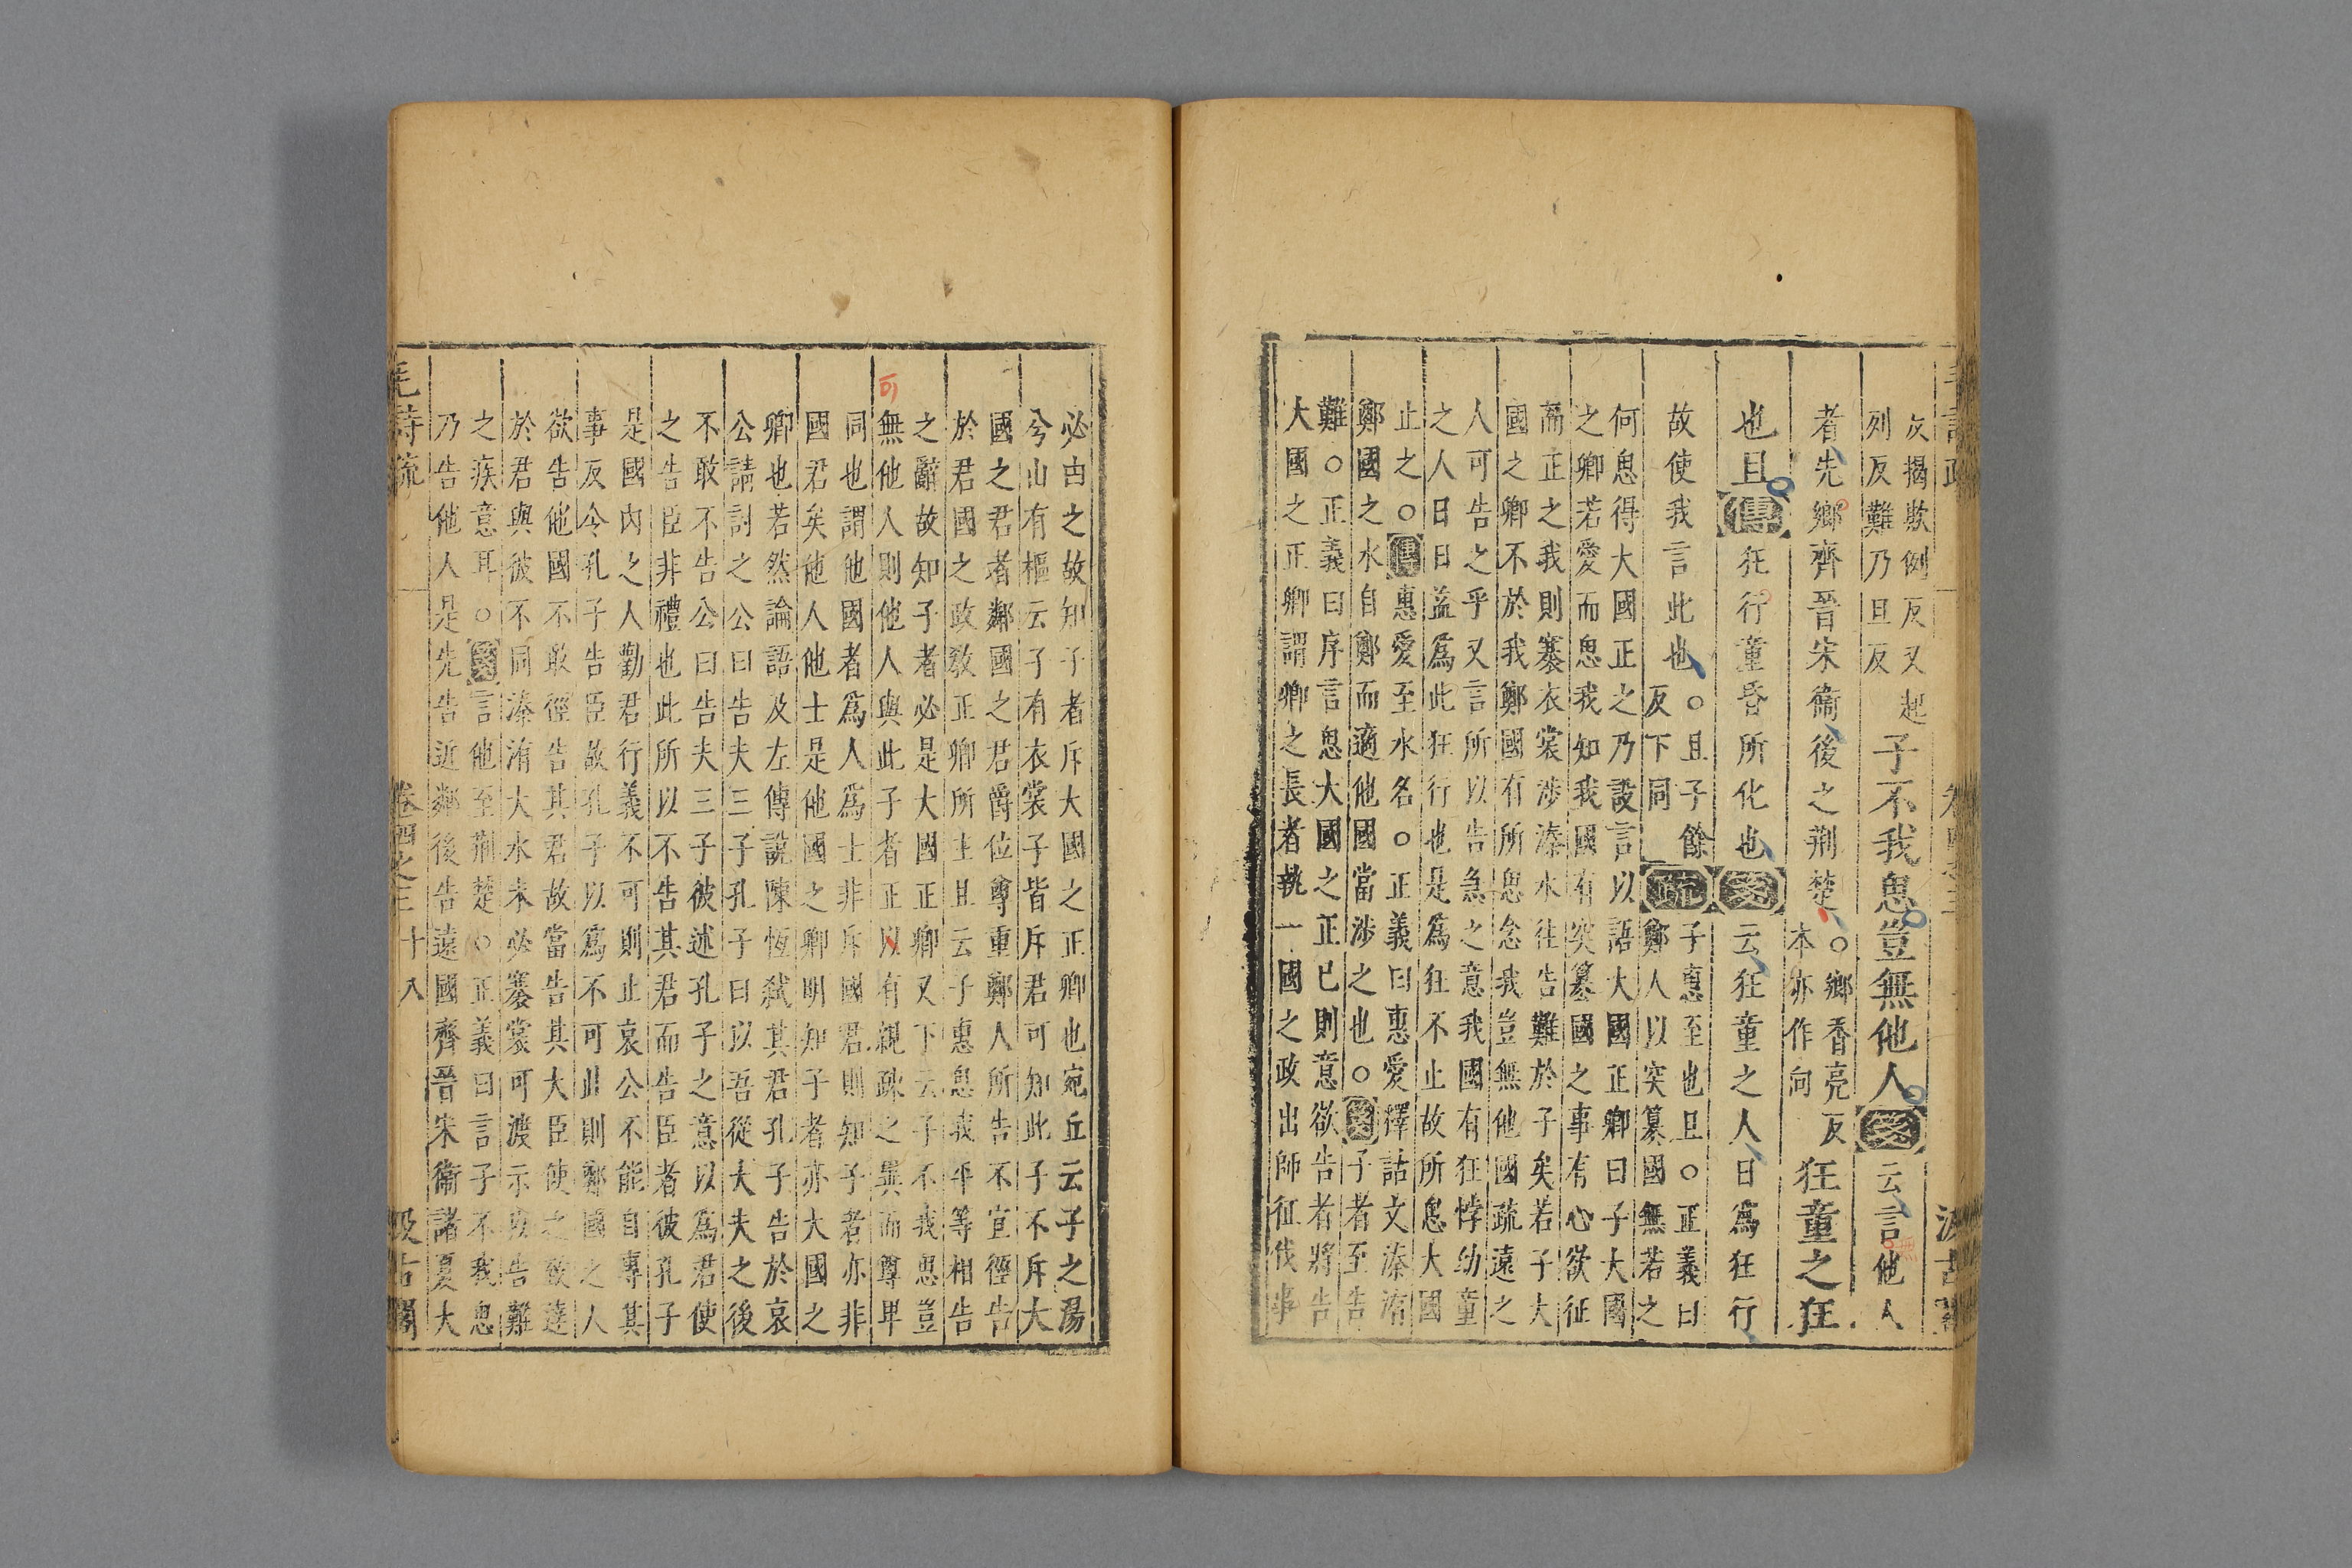 反揭欺例反又起
列反難乃旦反
子不我思豈無他人箋云言他人
者先鄉齊晉宋衞後之荆楚
○鄉香亮反
本亦作向
狂童之狂
也且傳狂行童昏所化也箋云狂童之人日爲狂行
故使我言此也
○且子餘
反下同
疏
子惠至也且○正義曰
鄭人以突簒國無若之
何思得大國正之乃設言以語大國正卿曰子大國
之卿若愛而思我知我國有突簒國之事有心欲征
而正之我則褰衣裳涉溱水往告難於子矣若子大
國之卿不於我鄭國有所思念我豈無他國疏遠之
人可告之乎又言所以告急之意我國有狂悖幼童
之人日日益爲此狂行也是爲狂不止故所思大國
止之○傳惠愛至水名○正義曰惠愛釋詁文溱洧
鄭國之水自鄭而適他國當涉之也○箋子者至告
難○正義曰序言思大國之正已則意欲告者將告
大國之正卿謂卿之長者執一國之政出師征伐事
必由之故知子者斥大國之正卿也宛丘云子之湯
兮山有樞云子有衣裳子皆斥君可知此子不斥大
國之君者鄰國之君爵位尊重鄭人所告不宜徑告
於君國之政敎正卿所主且云子惠思我平等相告
之辭故知子者必是大國正卿又下云子不我思豈
無他人則他人與此子者正以有親疎之異而尊卑
同也謂他國者爲人爲士非斥國君則知子者亦非
國君矣他人他士是他國之卿明知子者亦大國之
卿也若然論語及左傳說陳恆弑其君孔子告於哀
公請討之公曰告夫三子孔子曰以吾從大夫之後
不敢不告公曰告夫三子彼述孔子之意以爲君使
之告臣非禮也此所以不告其君而告臣者彼孔子
是國內之人勸君行義不可則止哀公不能自專其
事反令孔子告臣故孔子以爲不可此則鄭國之人
欲告他國不敢徑告其君故當告其大臣使之致達
於君與彼不同溱洧大水未必褰裳可渡示以告難
之疾意耳○箋言他至荆楚○正義曰言子不我思
乃告他人是先告近鄰後告遠國齊晉宋衞諸夏大
毛詩疏
卷四之三
十八
汲古閣
可